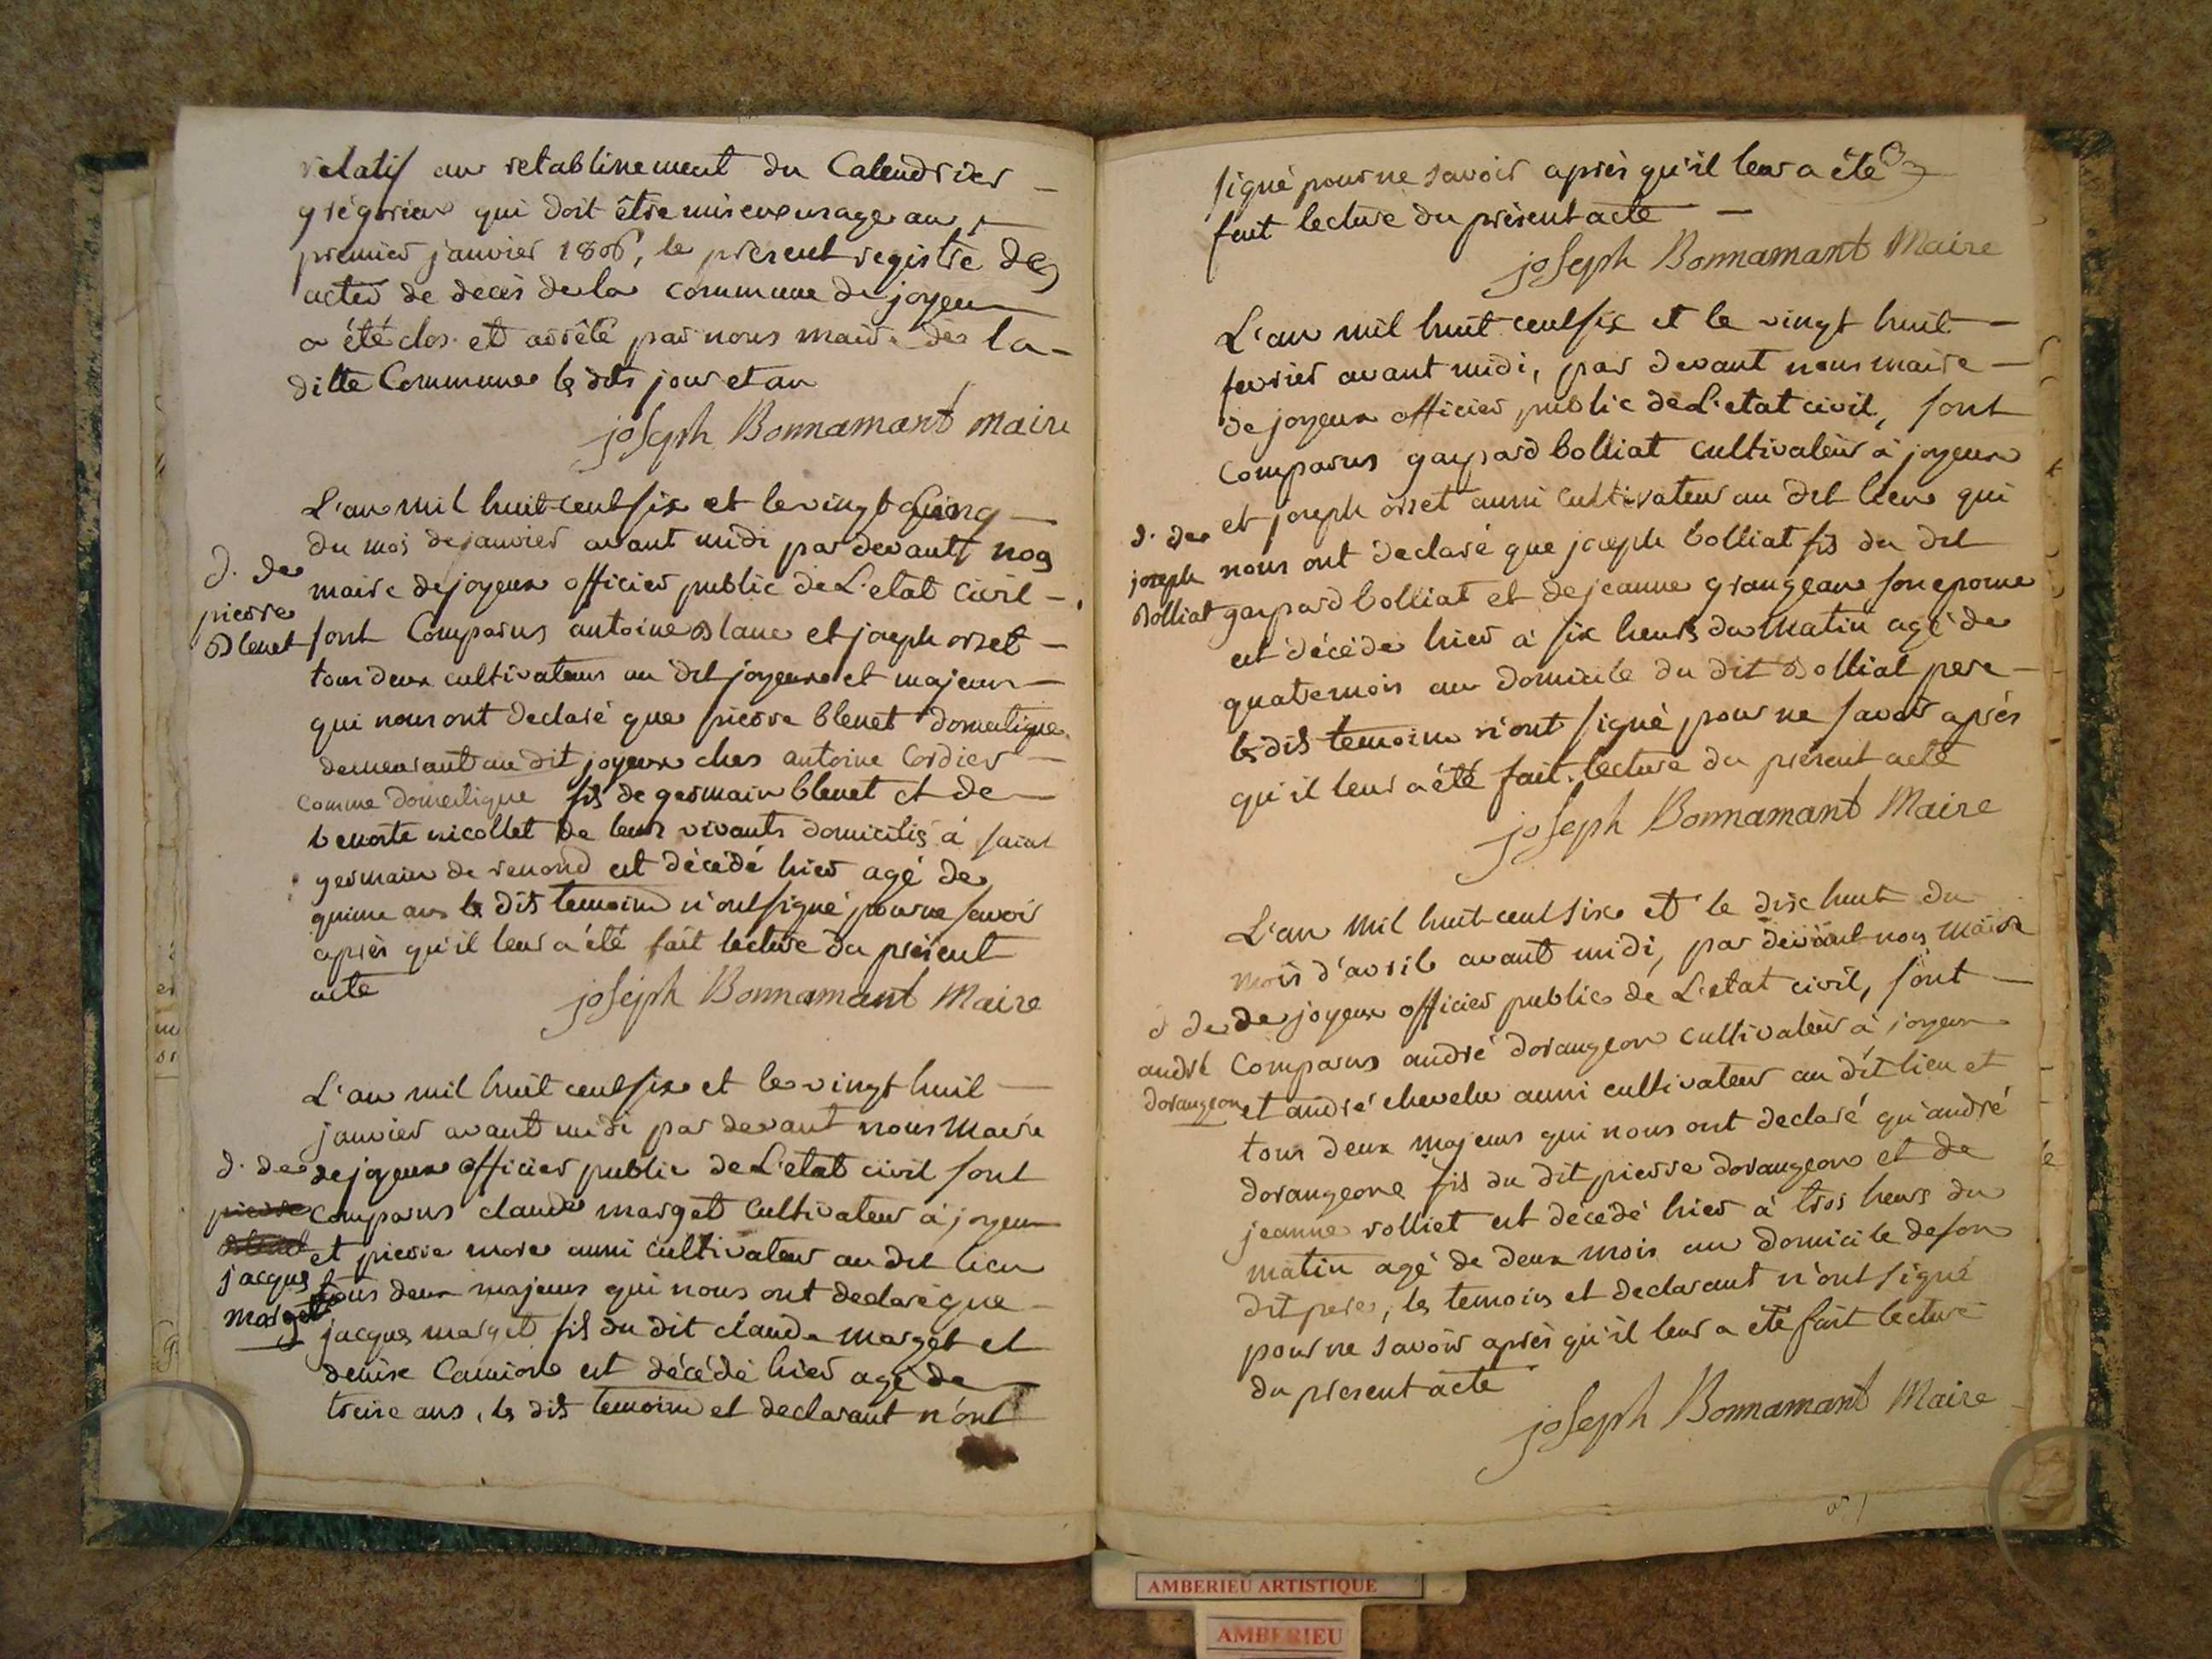 relatif au retablissement du Calendrier
grégorien qui doit être mis en usage au
premier janvier 1806, le present registre des
actes de deces de la commune de joyeux
a été clos et arrêté par nous maire de la
ditte Commune les dits jour et an
joseph Bonnamant maire
L'an mil huit cent six et le vingt cinq
du mois de janvier avant midi par devant nous
maire de joyeux officier public de L'etat civil
sont Comparus antoine Blanc et joseph orset
tous deux cultivateurs au dit joyeux et majeurs
qui nous ont declaré que pierre blenet domestique
demeurant au dit joyeux ches antoine Cordier
comme domestique fils de germain blenet et de
benoite nicollet de leurs vivants domiciliés à saint
germain de renond est décédé hier agé de
quinze ans les dits temoins n'ont signé pour ne savoir
après qu'il leur a été fait lecture du présent
acte
joseph Bonnamant Maire
d. de
pierre
Blenet
L'an mil huit cent six et le vingt huit
janvier avant midi par devant nous Maire
de joyeux officier public de L'etat civil sont
comparus claude marget Cultivateur à joyeux
et pierre more aussi cultivateur au dit lieu
tous deux majeurs qui nous ont declaré que
jacques marget fils du dit claude Marget et
denise Camion est décédé hier agé de
treize ans, les dits temoins et declarant n'ont
d. de
pierre
Blenet
jacques
marget
signé pour ne savoir après qu'il leur a été
fait lecture du présent acte
joseph Bonnamant Maire
L'an mil huit cent six et le vingt huit
fevrier avant midi, par devant nous maire
de joyeux officier public de L'etat civil, sont
Comparus gaspard bolliat cultivateur à joyeux
et joseph orset aussi cultivateur au dit lieu qui
nous ont déclaré que joseph bolliat fils du dit
gaspard bolliat et de jeanne grangean son epouse
est décédé hier à six heurs du Matin agé de
quatre mois au domicile du dit Bolliat pere
les dits temoins n'ont signé pour ne savoir après
qu'il leur a été fait lecture du présent acte
joseph Bonnamant Maire
d. de
joseph
Bolliat
L'an Mil huit cent six et le dix huit du
mois d'avril avant midi, par devant nous Maire
de joyeux officier public de L'etat civil, sont
Comparus andré dorangeon cultivateur à joyeux
et andré chevelu aussi cultivateur au dit lieu et
tous deux majeurs qui nous ont declaré qu'andré
dorangeon fils du dit pierre dorangeon et de
jeanne rolliet est décédé hier à trois heurs du
matin agé de deux mois au domicile de son
dit pere, les temoins et declarant n'ont signé
pour ne savoir après qu'il leur a été fait lecture
du present acte
joseph Bonnamant Maire
d de
andré
dorangeon
AMBERIEU ARTISTIQUE
AMBERIEU